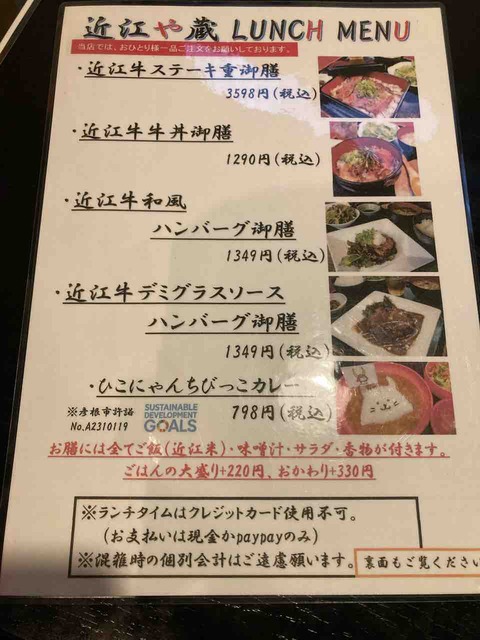 近江や蔵 LUNCH MENU
当店では、おひとり様一品ご注文をお願いしております。
・近江牛ステーキ重御膳
3598円(税込)
・近江牛牛丼御膳
1290円(税込)
・近江牛和風
ハンバーグ御膳
1349円(税込)
・近江牛デミグラスソース
ハンバーグ御膳
1349円(税込)
・ひこにゃんちびっこカレー
※彦根市許諾
No.A2310119
SUSTAINABLE
DEVELOPMENT
GOALS
798円(税込)
お膳には全てご飯(近江米)・味噌汁・サラダ・香物が付きます。
ごはんの大盛り+220円、おかわり+330円
※ランチタイムはクレジットカード使用不可。
(お支払いは現金かpaypayのみ)
※混雑時の個別会計はご遠慮願います。
裏面もご覧ください